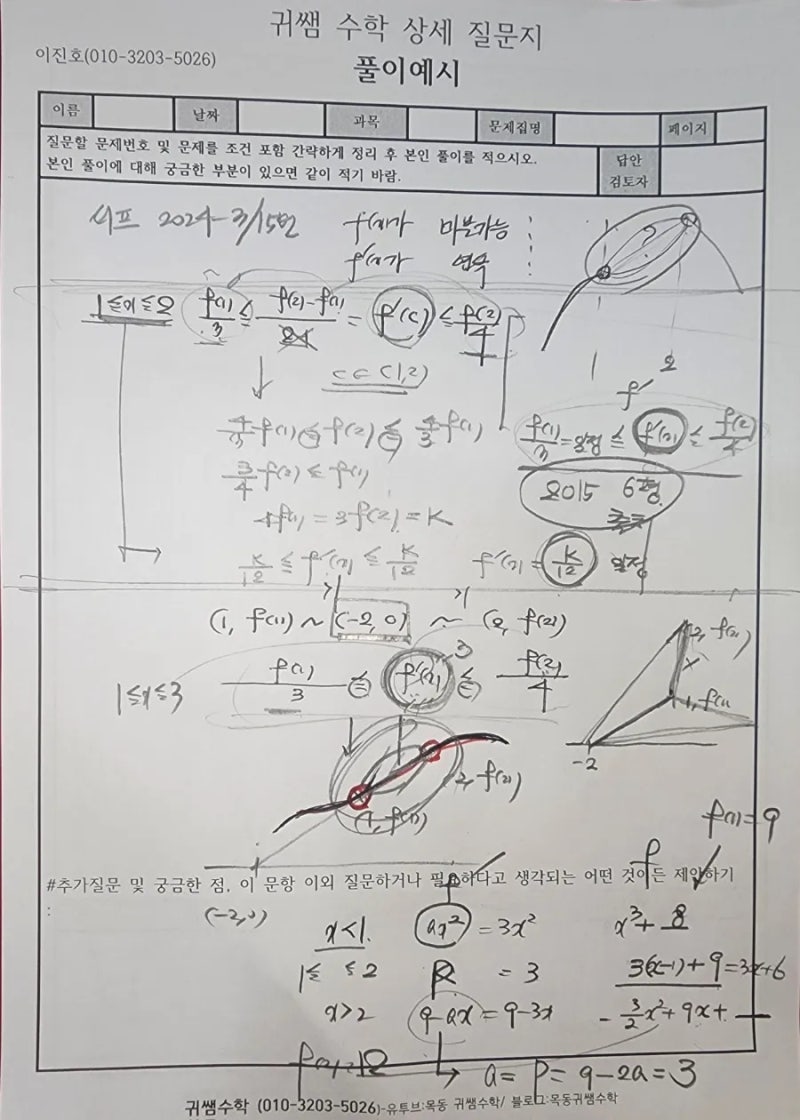 귀쌤 수학 상세 질문지
이진호(010-3203-5026)
풀이예시
이름 날짜 과목 문제집명 페이지
질문할 문제번호 및 문제를 조건 포함 간략하게 정리 후 본인 풀이를 적으시오.
본인 풀이에 대해 궁금한 부분이 있으면 같이 적기 바람.
답안
검토자
시프 2024-3/15번
f(x)가 미분가능
f'(x)가 연속
1≤x≤2 f(1)/3 ≤ f(2)-f(1)/2-1 = f'(c) ≤ f(2)/4
c∈(1,2)
1 2
f'
4/3 f(1) ≤ f(2) ≤ 4/3 f(1)
f(1)/3 = 일정 ≤ f'(x) ≤ f(2)/4
3/4 f(2) ≤ f(1)
2015 6평
4f(1) = 3f(2) = K
K/12 ≤ f'(x) ≤ K/12 f'(x) = K/12 일정
(1, f(1)) ~ (-2, 0) ~ (2, f(2))
1≤x≤3 f(1)/3 ≤ f'(x) ≤ f(2)/4
3
2, f(2)
1, f(1)
-2
2, f(2)
(1, f(1))
f(1)=9
#추가질문 및 궁금한 점, 이 문항 이외 질문하거나 필요하다고 생각되는 어떤 것이든 제안하기
:
(-2,0)
f
x<1 ax² = 3x² x³+8
1≤ ≤2 = 3 3(x-1)+9=3x+6
x>2 9-ax = 9-3x -3/2x²+9x+
f(2)=12 → a= p= 9-2a=3
귀쌤수학 (010-3203-5026)-유투브:목동 귀쌤수학/ 블로그:목동귀쌤수학